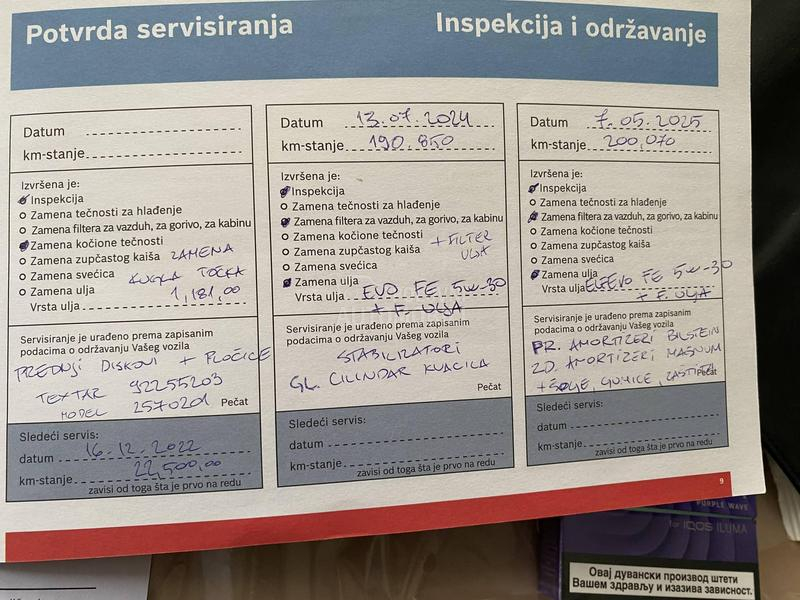 Potvrda servisiranja
Inspekcija i održavanje
Datum
km-stanje
Izvršena je:
Inspekcija
Zamena tečnosti za hlađenje
Zamena filtera za vazduh, za gorivo, za kabinu
Zamena kočione tečnosti
Zamena zupčastog kaiša ZAMENA
Zamena svećica KUGLA TOČKA
Zamena ulja 1,181,00
Vrsta ulja
Servisiranje je urađeno prema zapisanim
podacima o održavanju Vašeg vozila
PREDNJI DISKOVI + PLOČICE
TEXTAR 92255203
MODEL 2570201 Pečat
Sledeći servis:
datum 16.12.2022
km-stanje 22,500,00
zavisi od toga šta je prvo na redu
Datum 13.07.2024
km-stanje 190.850
Izvršena je:
Inspekcija
Zamena tečnosti za hlađenje
Zamena filtera za vazduh, za gorivo, za kabinu
Zamena kočione tečnosti + FILTER
Zamena zupčastog kaiša ULJA
Zamena svećica
Zamena ulja
Vrsta ulja EVO FE 5W-30
+ F. ULJA
Servisiranje je urađeno prema zapisanim
podacima o održavanju Vašeg vozila
STABILIZATORI
GL. CILINDAR KVAČILA
Pečat
Sledeći servis:
datum
km-stanje
zavisi od toga šta je prvo na redu
Datum 7.05.2025
km-stanje 200,070
Izvršena je:
Inspekcija
Zamena tečnosti za hlađenje
Zamena filtera za vazduh, za gorivo, za kabinu
Zamena kočione tečnosti
Zamena zupčastog kaiša
Zamena svećica
Zamena ulja
Vrsta ulja FE 5W-30
+ F. ULJA
Servisiranje je urađeno prema zapisanim
podacima o održavanju Vašeg vozila
PR. AMORTIZERI BILSTEIN
ZD. AMORTIZERI MAGNUM
+ ŠOLJE, GUMICE, Pečat
Sledeći servis:
datum
km-stanje
zavisi od toga šta je prvo na redu
9
PURPLE WAVE
for IQOS ILUMA
Овај дувански производ штети
Вашем здрављу и изазива зависност.